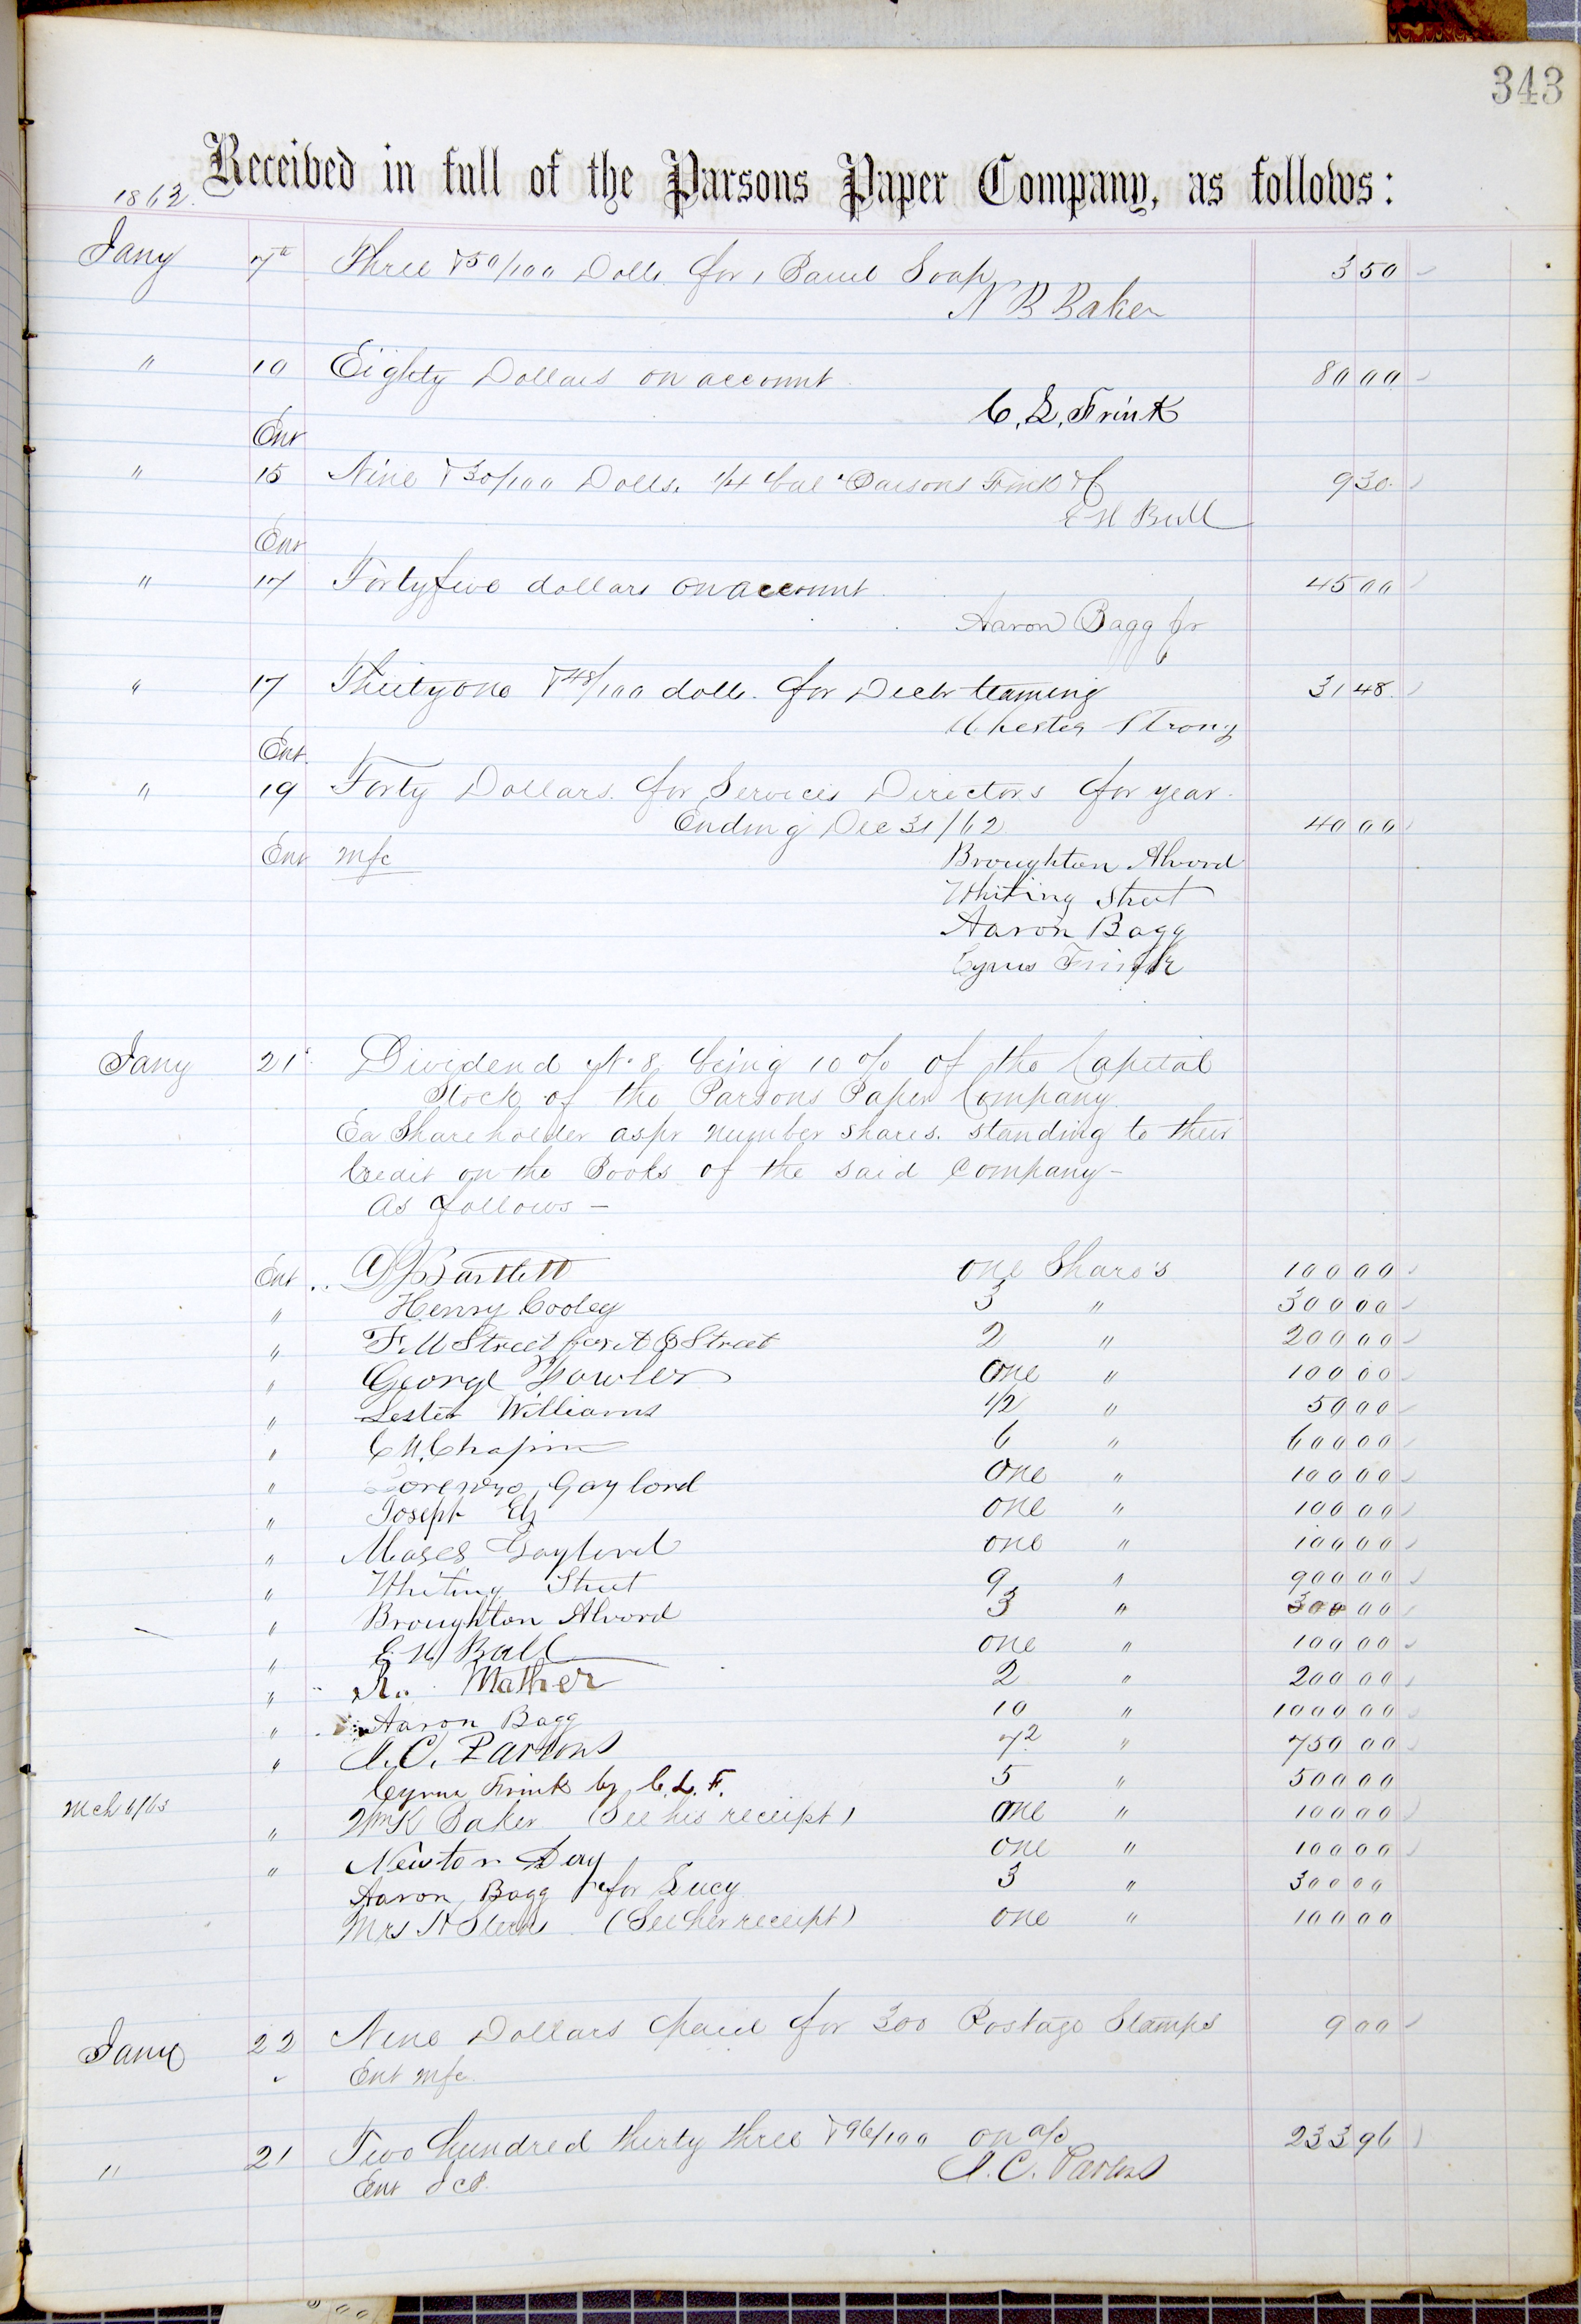 343
Received in full of the Parsons Paper Company, as follows:
1863.
Jany 7th Three & 50/100 Dolls for 1 Barrel Soap 3 50
N B Baker
" 10 Eighty Dollars on account 80 00
C. L. Frink
Ent
" 15 Nine & 30/100 Dolls. Parsons Frink & C 9 30
E H Ball
Ent
" 17 Fortyfive dollars on account 45 00
Aaron Bagg Jr
" 17 Thirtyone & 48/100 dolls. for Decbr teaming 31 48
Chester Strong
Ent.
" 19 Forty Dollars. for Services Directors for year
Ending Dec 31/62 40 00
Ent mfc Broughton Alvord
Whiting Street
Aaron Bagg
Cyrus Frink
Jany 21st Dividend No 8 being 10 % of the Capital
Stock of the Parsons Paper Company
Ea Shareholder aspr number shares. standing to their
Credit on the Books of the said Company –
As follows –
Ent Bartlett one Share's 100 00
" Henry Cooley 3 " 300 00
" Street for Street 2 " 200 00
" George Fowler One " 100 00
" Lester Williams 1/2 " 50 00
" C W. Chapin 6 " 600 00
" Lorenzo Gaylord One " 100 00
" Joseph Ely one " 100 00
" Moses Gaylord one " 100 00
" Whiting Street 9 " 900 00
" Broughton Alvord 3 " 300 00
" E H Ball one " 100 00
" R. Mather 2 " 200 00
" Aaron Bagg 10 " 1000 00
" J. C. Parsons 7 1/2 " 750 00
Cyrus Frink by C. L. F. 5 " 500 00
Mch 6/63 " Wm K Baker (See his receipt) one " 100 00
" Newton Day one " 100 00
Aaron Bagg for Lucy 3 " 300 00
Mrs (See her receipt) one " 100 00
Jany 22 Nine Dollars paid for 300 Postage Stamps 9 00
Ent mfc
" 21 Two hundred thirty three & 96/100 on a/c 233 96
J. C. Parsons
Ent JCP.